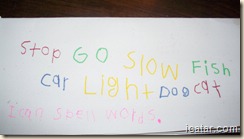 Stop GO SLOW Fish
car Light Dog cat
I can spell words.
icatar.com